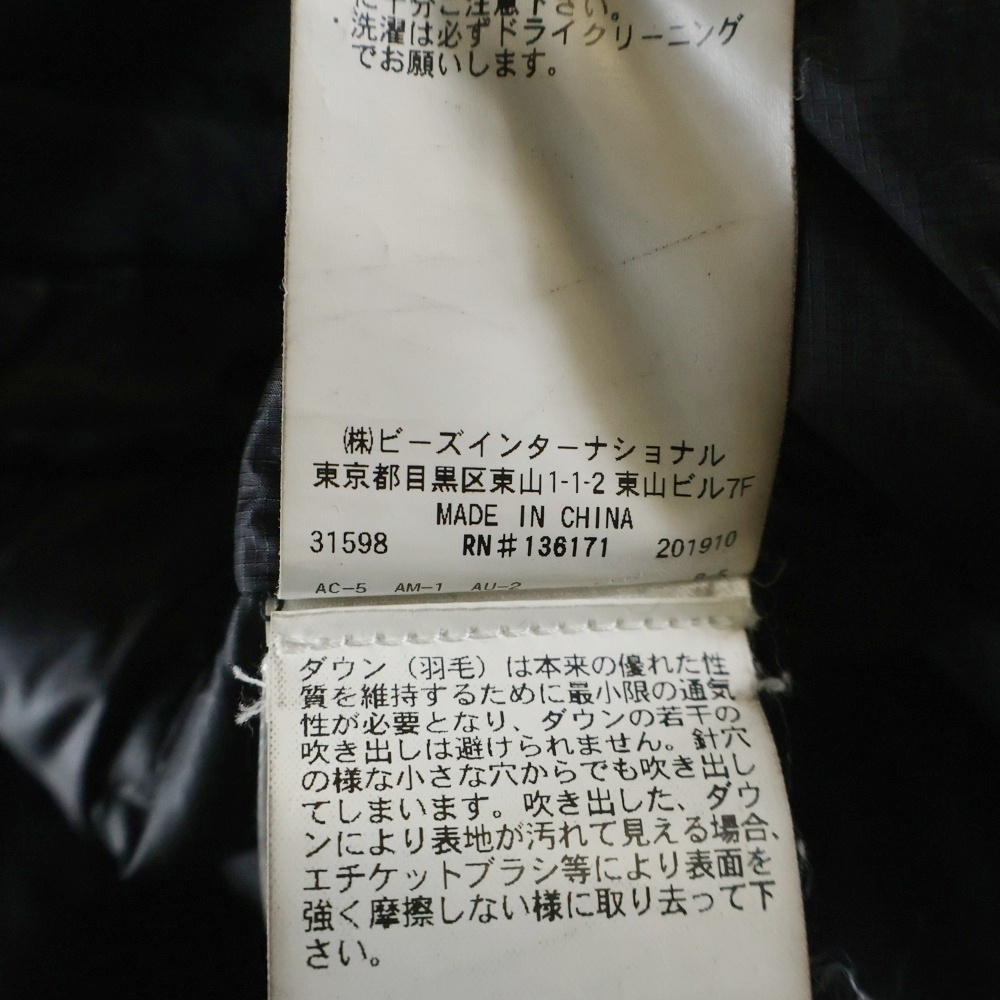 に十分ご注意下さい。
・洗濯は必ずドライクリーニング
でお願いします。
㈱ビーズインターナショナル
東京都目黒区東山1-1-2 東山ビル7F
MADE IN CHINA
31598 RN#136171 201910
AC-5 AM-1 AU-2
ダウン（羽毛）は本来の優れた性
質を維持するために最小限の通気
性が必要となり、ダウンの若干の
吹き出しは避けられません。針穴
の様な小さな穴からでも吹き出し
てしまいます。吹き出した、ダウ
ンにより表地が汚れて見える場合、
エチケットブラシ等により表面を
強く摩擦しない様に取り去って下
さい。